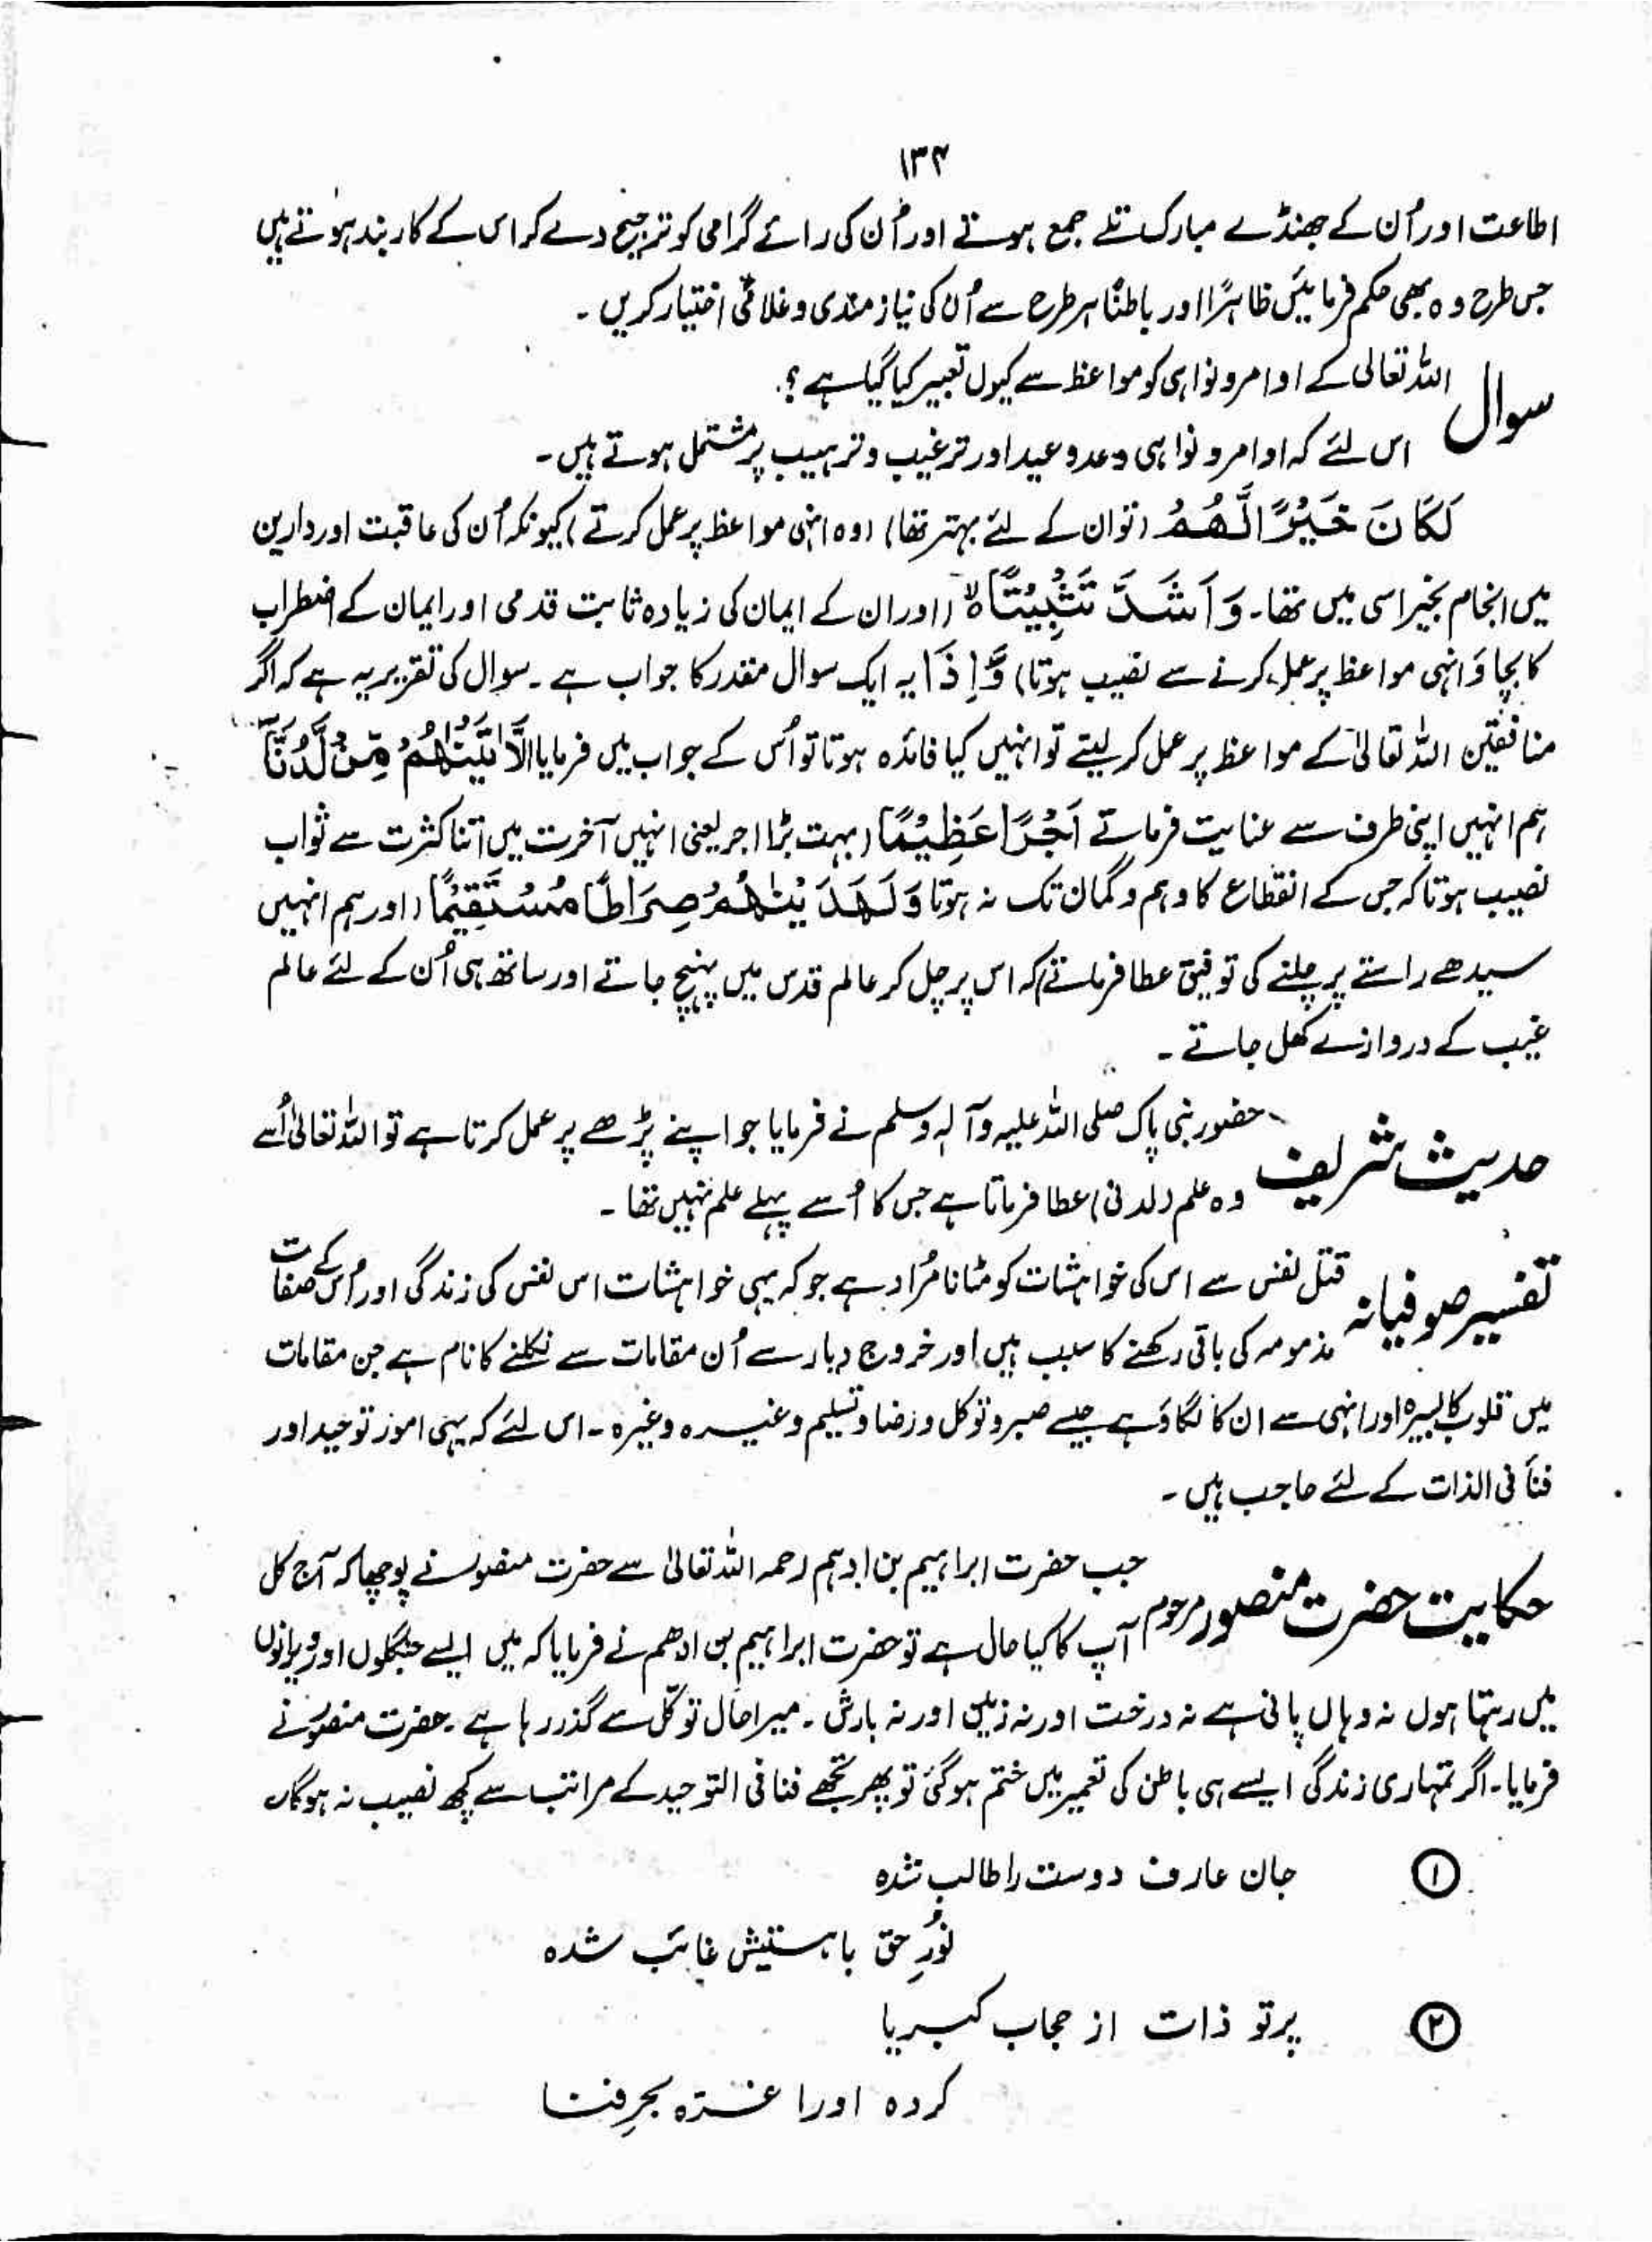 ۱۳۴
اطاعت اور اُن کے جھنڈے مبارک تلے جمع ہوتے اور اُن کی رائے گرامی کو ترجیح دے کر اس کے کاربند ہوتے ہیں
جس طرح وہ بھی حکم فرمائیں ظاہرًا اور باطنًا ہر طرح سے اُن کی نیازمندی و غلامی اختیار کریں ۔
سوال اللہ تعالیٰ کے اوامر و نواہی کو مواعظ سے کیوں تعبیر کیا گیا ہے ؟
اس لئے کہ اوامر و نواہی وعد وعید اور ترغیب و ترہیب پر مشتمل ہوتے ہیں ۔
لَكَانَ خَيْرًا لَّهُمْ (تو ان کے لئے بہتر تھا) (وہ انہی مواعظ پر عمل کرتے) کیونکہ اُن کی عاقبت اور دارین
میں انجام بخیر اسی میں تھا ۔ وَاَشَدَّ تَثْبِيْتًاۙ (اور ان کے ایمان کی زیادہ ثابت قدمی اور ایمان کے اضطراب
کا بچاؤ انہی مواعظ پر عمل کرنے سے نصیب ہوتا) وَّاِذًا یہ ایک سوال مقدر کا جواب ہے ۔ سوال کی تقریر یہ ہے کہ اگر
منافقین اللہ تعالیٰ کے مواعظ پر عمل کر لیتے تو انہیں کیا فائدہ ہوتا تو اُس کے جواب میں فرمایا لَّاٰتَيْنٰهُمْ مِّنْ لَّدُنَّآ
ہم انہیں اپنی طرف سے عنایت فرماتے اَجْرًا عَظِيْمًا (بہت بڑا اجر یعنی انہیں آخرت میں اتنا کثرت سے ثواب
نصیب ہوتا کہ جس کے انقطاع کا وہم و گمان تک نہ ہوتا وَلَهَدَيْنٰهُمْ صِرَاطًا مُسْتَقِيْمًا (اور ہم انہیں
سیدھے راستے پر چلنے کی توفیق عطا فرماتے) کہ اس پر چل کر عالم قدس میں پہنچ جاتے اور ساتھ ہی اُن کے لئے عالم
غیب کے دروازے کھل جاتے ۔
حدیث شریف حضور نبی پاک صلی اللہ علیہ وآلہ وسلم نے فرمایا جو اپنے پڑھے پر عمل کرتا ہے تو اللہ تعالیٰ اُسے
وہ علم (لدنی) عطا فرماتا ہے جس کا اُسے پہلے علم نہیں تھا ۔
تفسیر صوفیانہ قتل نفس سے اس کی خواہشات کو مٹانا مُراد ہے جو کہ یہی خواہشات اس نفس کی زندگی اور اُس کے صفات
مذمومہ کی باقی رکھنے کا سبب ہیں اور خروج دیار سے اُن مقامات سے نکلنے کا نام ہے جن مقامات
میں قلوب کا بسیرہ اور انہی سے ان کا لگاؤ ہے جیسے صبر و توکل و رضا و تسلیم وغیرہ وغیرہ ۔ اس لئے کہ یہی امور توحید اور
فنا فی الذات کے لئے حاجب ہیں ۔
حکایت حضرت منصور مرحوم جب حضرت ابراہیم بن ادہم رحمہ اللہ تعالیٰ سے حضرت منصور نے پوچھا کہ آج کل
آپ کا کیا حال ہے تو حضرت ابراہیم بن ادھم نے فرمایا کہ میں ایسے جنگلوں اور ویرانوں
میں رہتا ہوں نہ وہاں پانی ہے نہ درخت اور نہ زمین اور نہ بارش ۔ میرا حال توکّل سے گذر رہا ہے ۔ حضرت منصور نے
فرمایا ۔ اگر تمہاری زندگی ایسے ہی باطن کی تعمیر میں ختم ہو گئی تو پھر تجھے فنا فی التوحید کے مراتب سے کچھ نصیب نہ ہوگا ۔
① جان عارف دوست را طالب شدہ
نُورِ حق با ہستیش غائب شدہ
② پرتو ذات از حجاب کبریا
کردہ اورا غرّہ بحرِ فنا